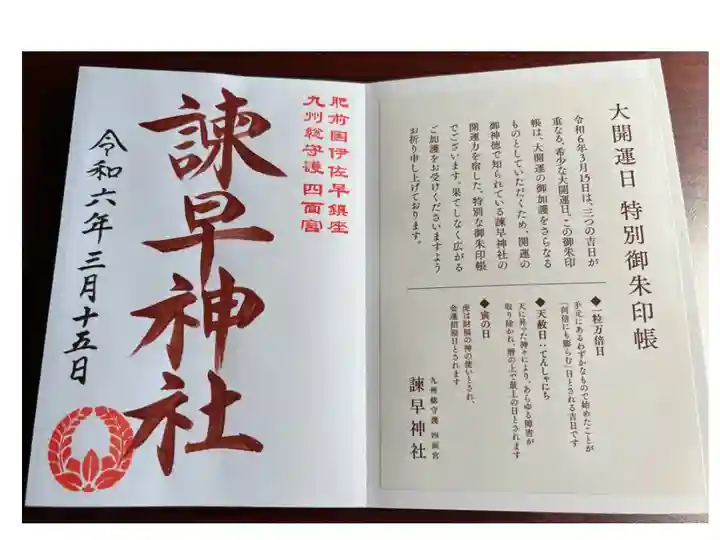 大開運日 特別御朱印帳
令和6年3月15日は、三つの吉日が
重なる、希少な大開運日。この御朱印
帳は、大開運の御加護をさらなる
ものとしていただくため、開運の
御神徳で知られている諫早神社の
開運力を宿した、特別な御朱印帳
でございます。果てしなく広がる
ご加護をお受けくださいますよう
お祈り申し上げております。
◆一粒万倍日
手元にあるわずかなもので始めたことが
「何倍にも膨らむ」日とされる吉日です
◆天赦日:てんしゃにち
天に昇った神々により、あらゆる障害が
取り除かれ、暦の上で最上の日とされます
◆寅の日
虎は財福の神の使いとされ、
金運招福日とされます
九州総守護 四面宮
諫早神社
肥前国伊佐早鎮座
九州総守護 四面宮
諫早神社
令和六年三月十五日